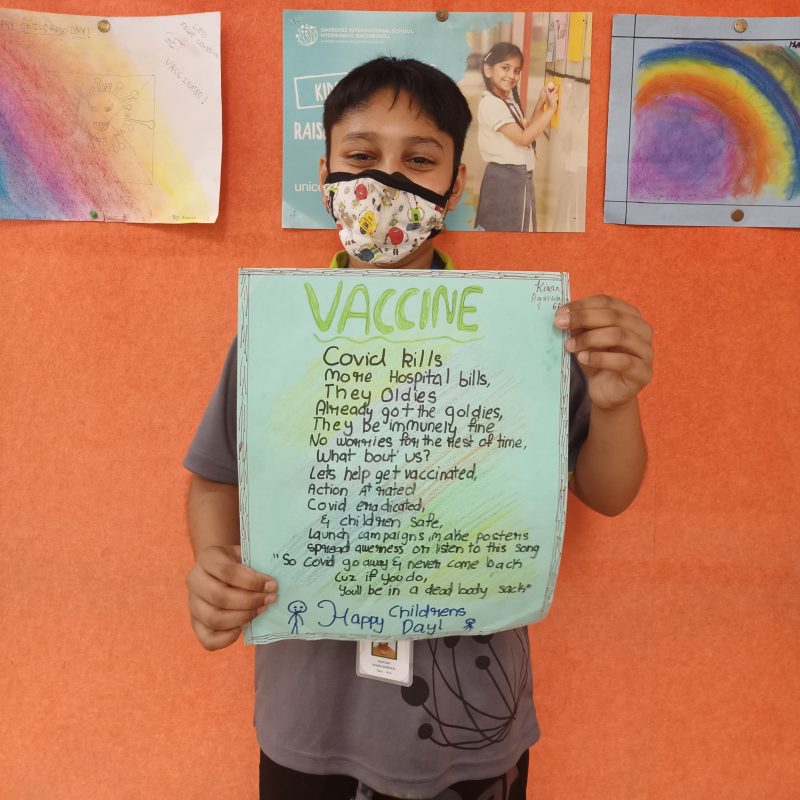 HAPPY CHILDREN DAY!
LETS
FIGHT COVID 19
GET
VACCINATED!
OAKRIDGE INTERNATIONAL SCHOOL
HYDERABAD, GACHIBOWLI
KIN
RAIS
unic
VACCINE
Kiaan
Covid kills
More Hospital bills,
They Oldies
Already got the goldies,
They be immunely fine
No worries for the rest of time,
What bout' us?
Lets help get vaccinated,
Action A+ rated
Covid eradicated,
& children safe,
Launch campaigns, make posters
spread awerness or listen to this song
"So Covid go away & never come back
Cuz if you do,
You'll be in a dead body sack"
Happy Childrens
Day!